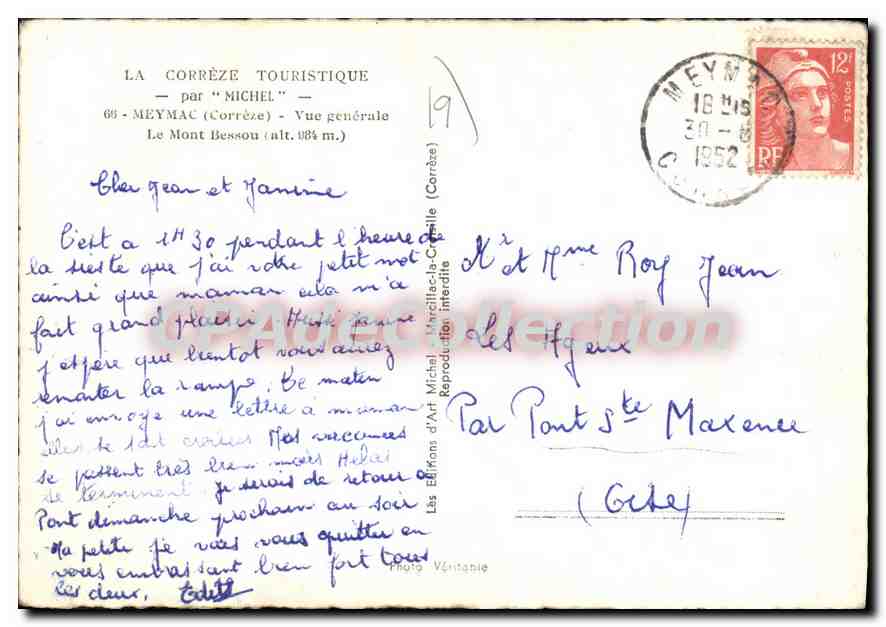 LA CORRÈZE TOURISTIQUE
— par "MICHEL" —
66 - MEYMAC (Corrèze) - Vue générale
Le Mont Bessou (alt. 984 m.)
Cher Jean et Janine
C'est a 1H30 pendant l'heure de
la sieste que j'ai votre petit mot
ainsi que maman cela m'a
fait grand plaisir
j'espère que bientot vous aurez
remonter la rampe. Ce matin
j'ai envoyé une lettre à maman
elles se sont croisées Mes vacances
se passent très bien mais Helas
se terminent. Je serais de retour a
Pont dimanche prochain au soir
Ma petite je vais vous quitter en
vous embrassant bien fort tous
les deux. Edith
19)
Les Editions d'Art Michel, Marcillac-la-Croisille (Corrèze)
Reproduction interdite
Photo Véritable
MEYMAC
18 H 15
30 - 8
1952
12F
POSTES
RF
Mr et Mme Roy Jean
Les Ageux
Par Pont Ste Maxence
(Oise)
CPAdeCollection